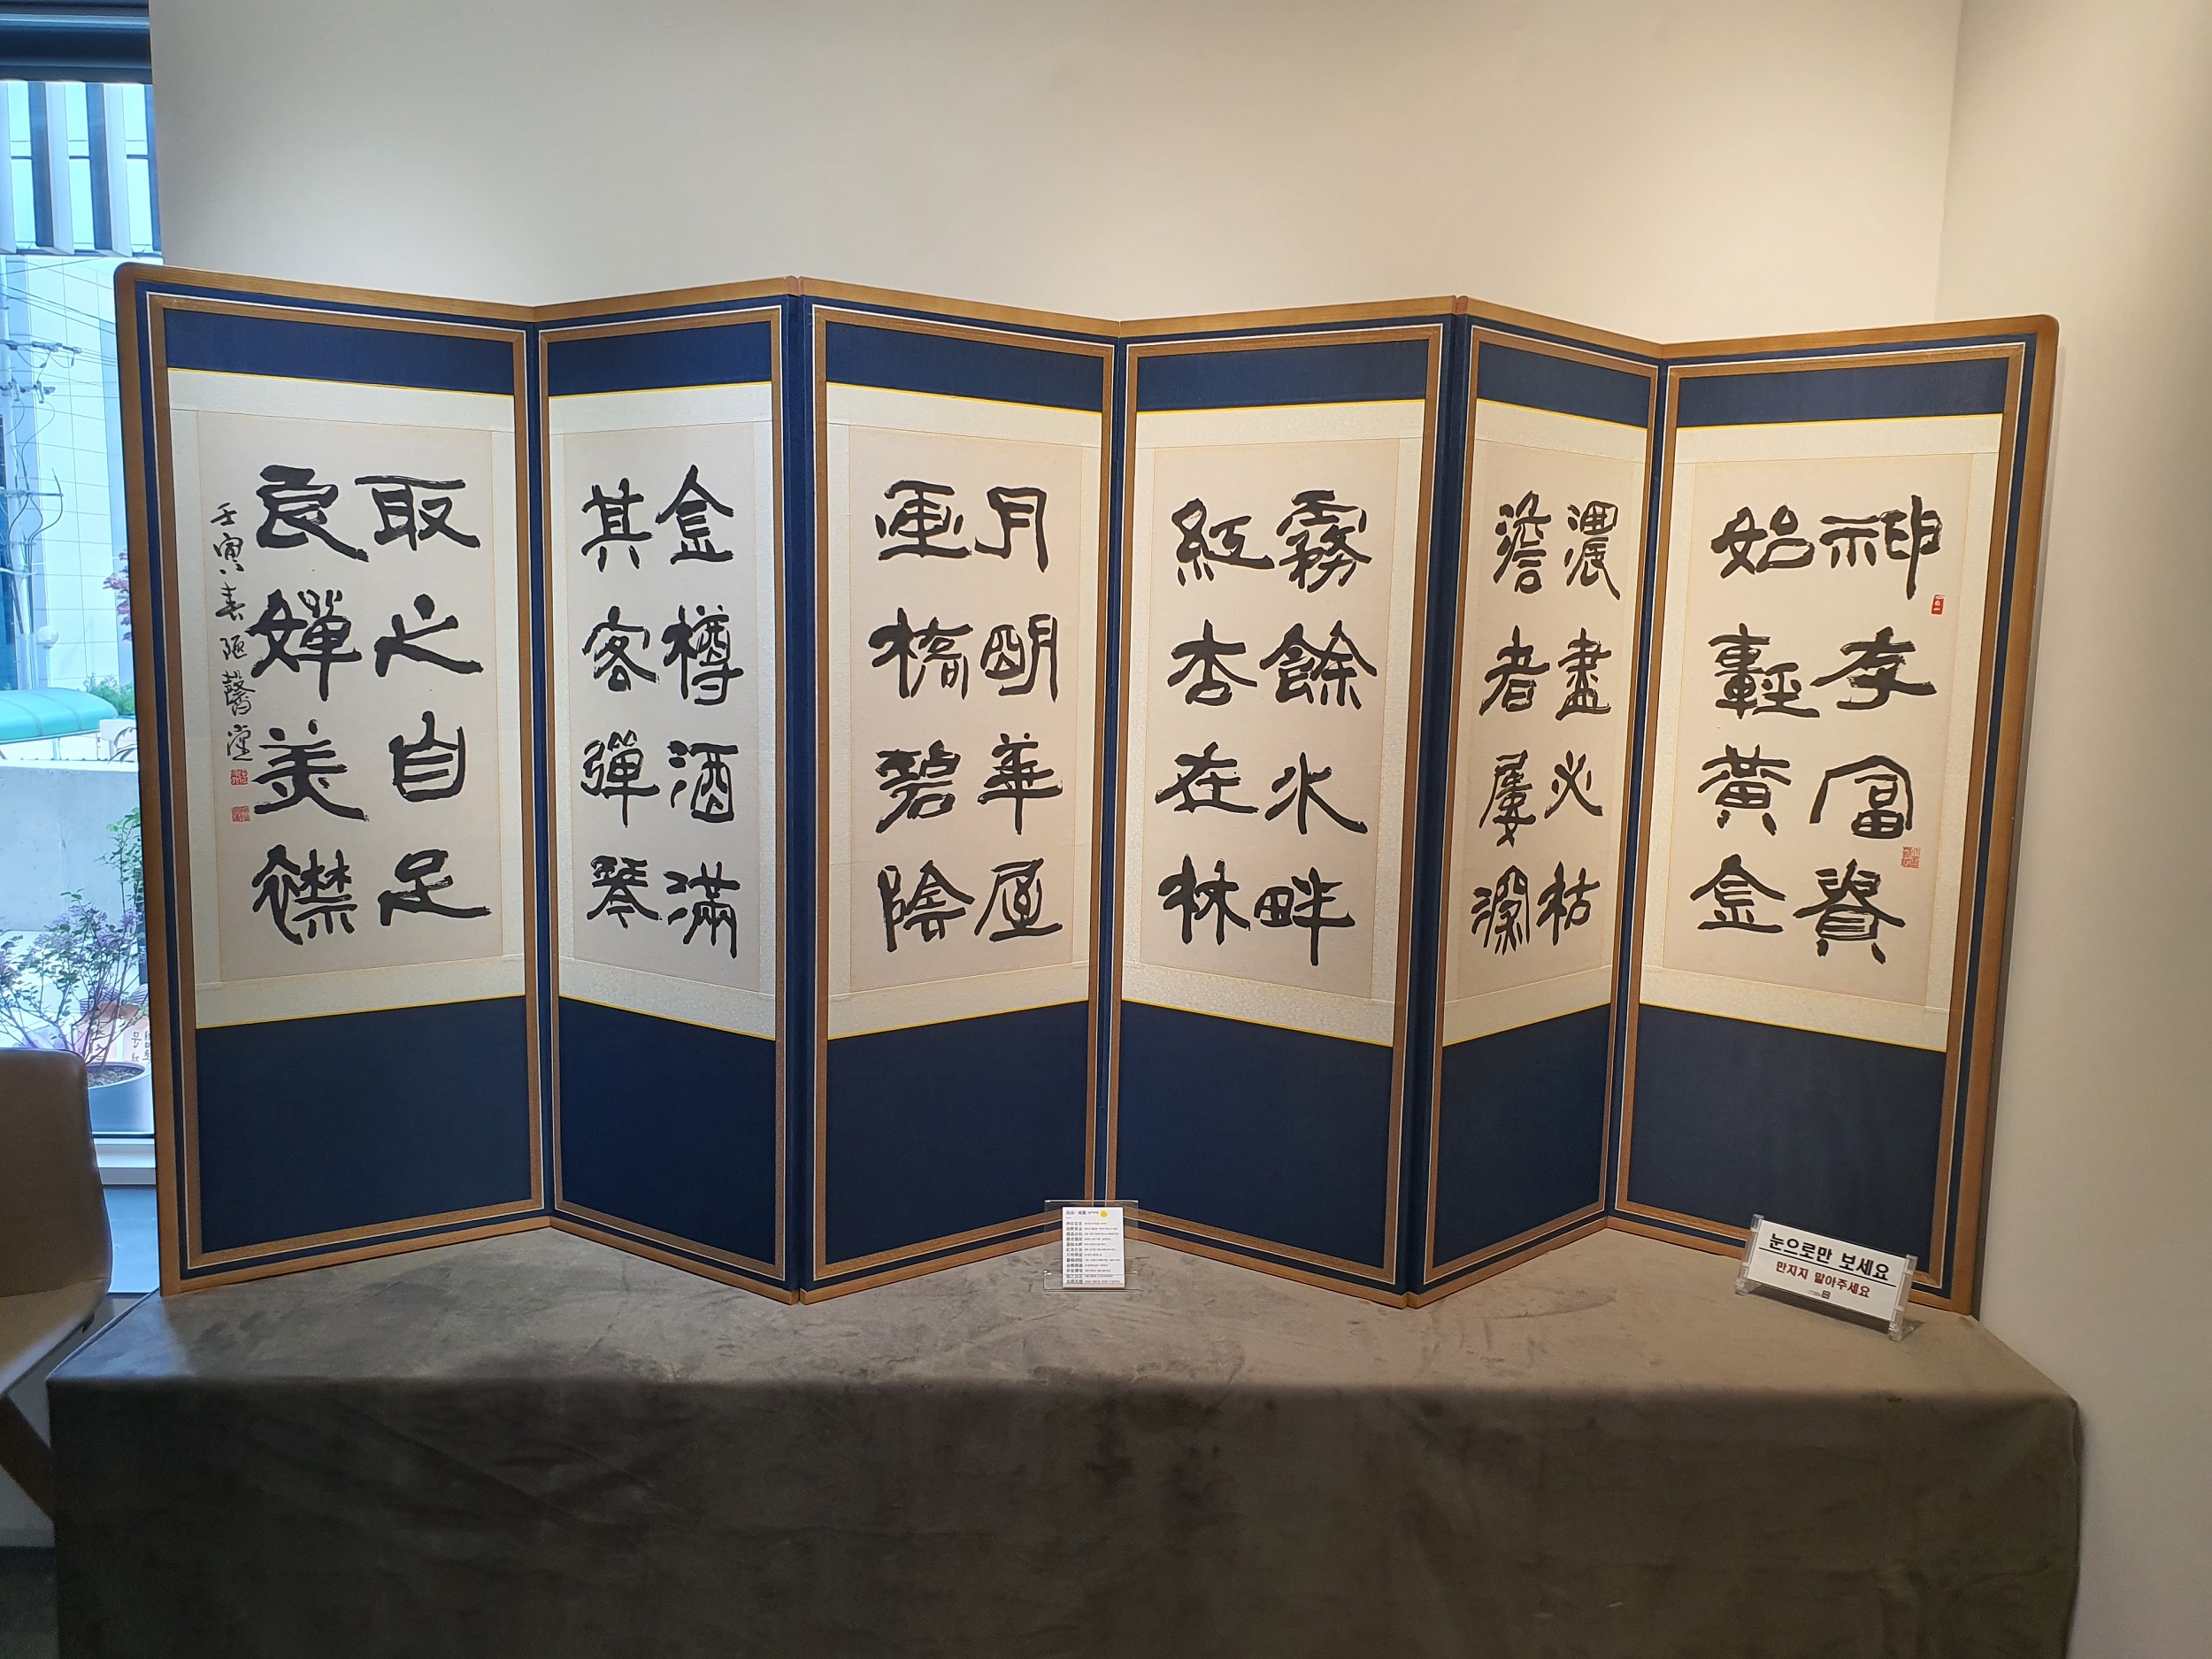 神存富貴
始輕黃金
濃盡必枯
澹者屢深
霧餘水畔
紅杏在林
月明華屋
畫橋碧陰
金樽酒滿
其客彈琴
取之自足
良嬋美襟
壬寅春
눈으로만 보세요
만지지 말아주세요